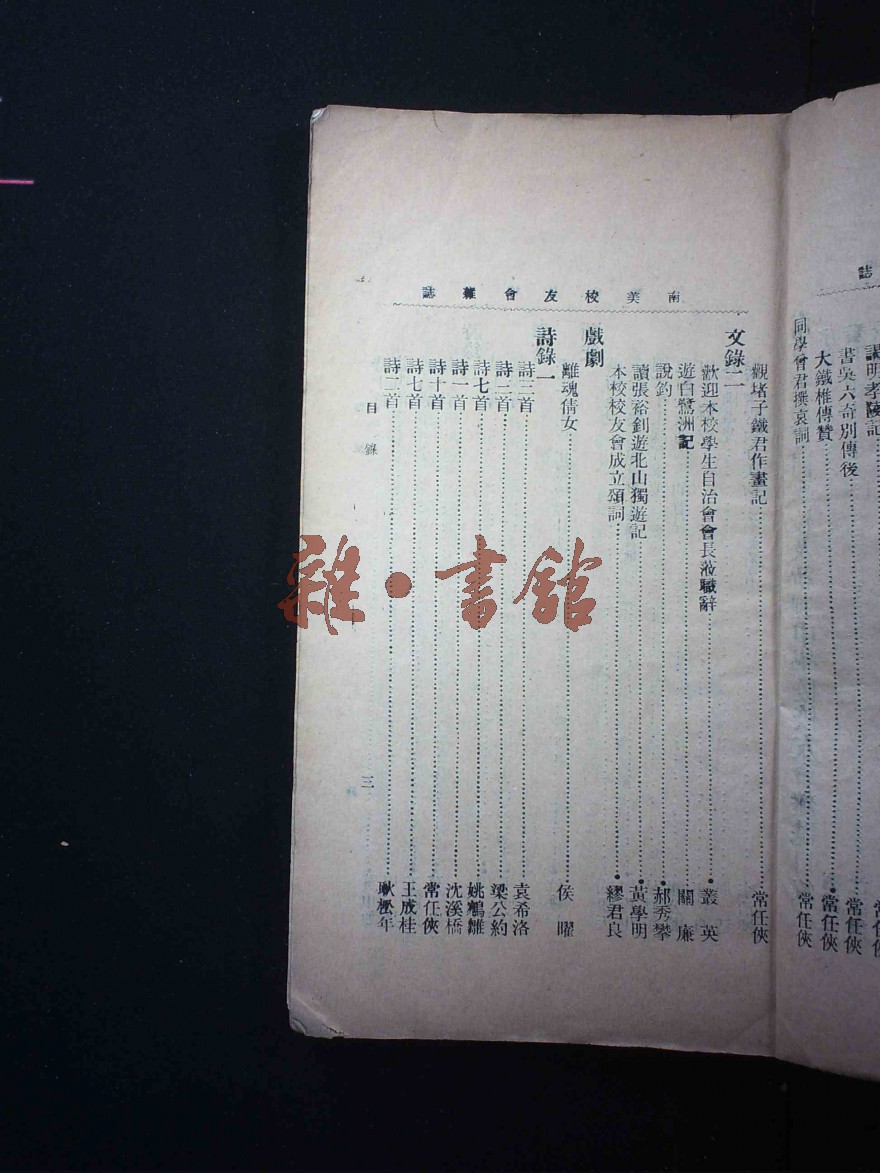 誌
謁明孝陵記 常任俠
書吳六奇別傳後 常任俠
大鐵椎傳贊 常任俠
同學會君撰哀詞 常任俠
南美校友會雜誌
觀堵子鐵君作畫記 常任俠
文錄二
歡迎本校學生自治會會長涖職辭 叢英
遊白鷺洲記 關廉
說釣 郝秀攀
讀張裕釗遊北山獨遊記 黃學明
本校校友會成立頌詞 繆君良
戲劇
離魂倩女 侯曜
詩錄一
詩三首 袁希洛
詩一首 梁公約
詩七首 姚鵷雛
詩一首 沈溪橋
詩十首 常任俠
詩七首 王成桂
詩二首 耿松年
目錄
三
雜·書館